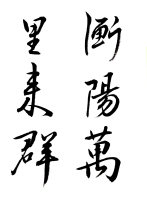 衡陽萬
里来群